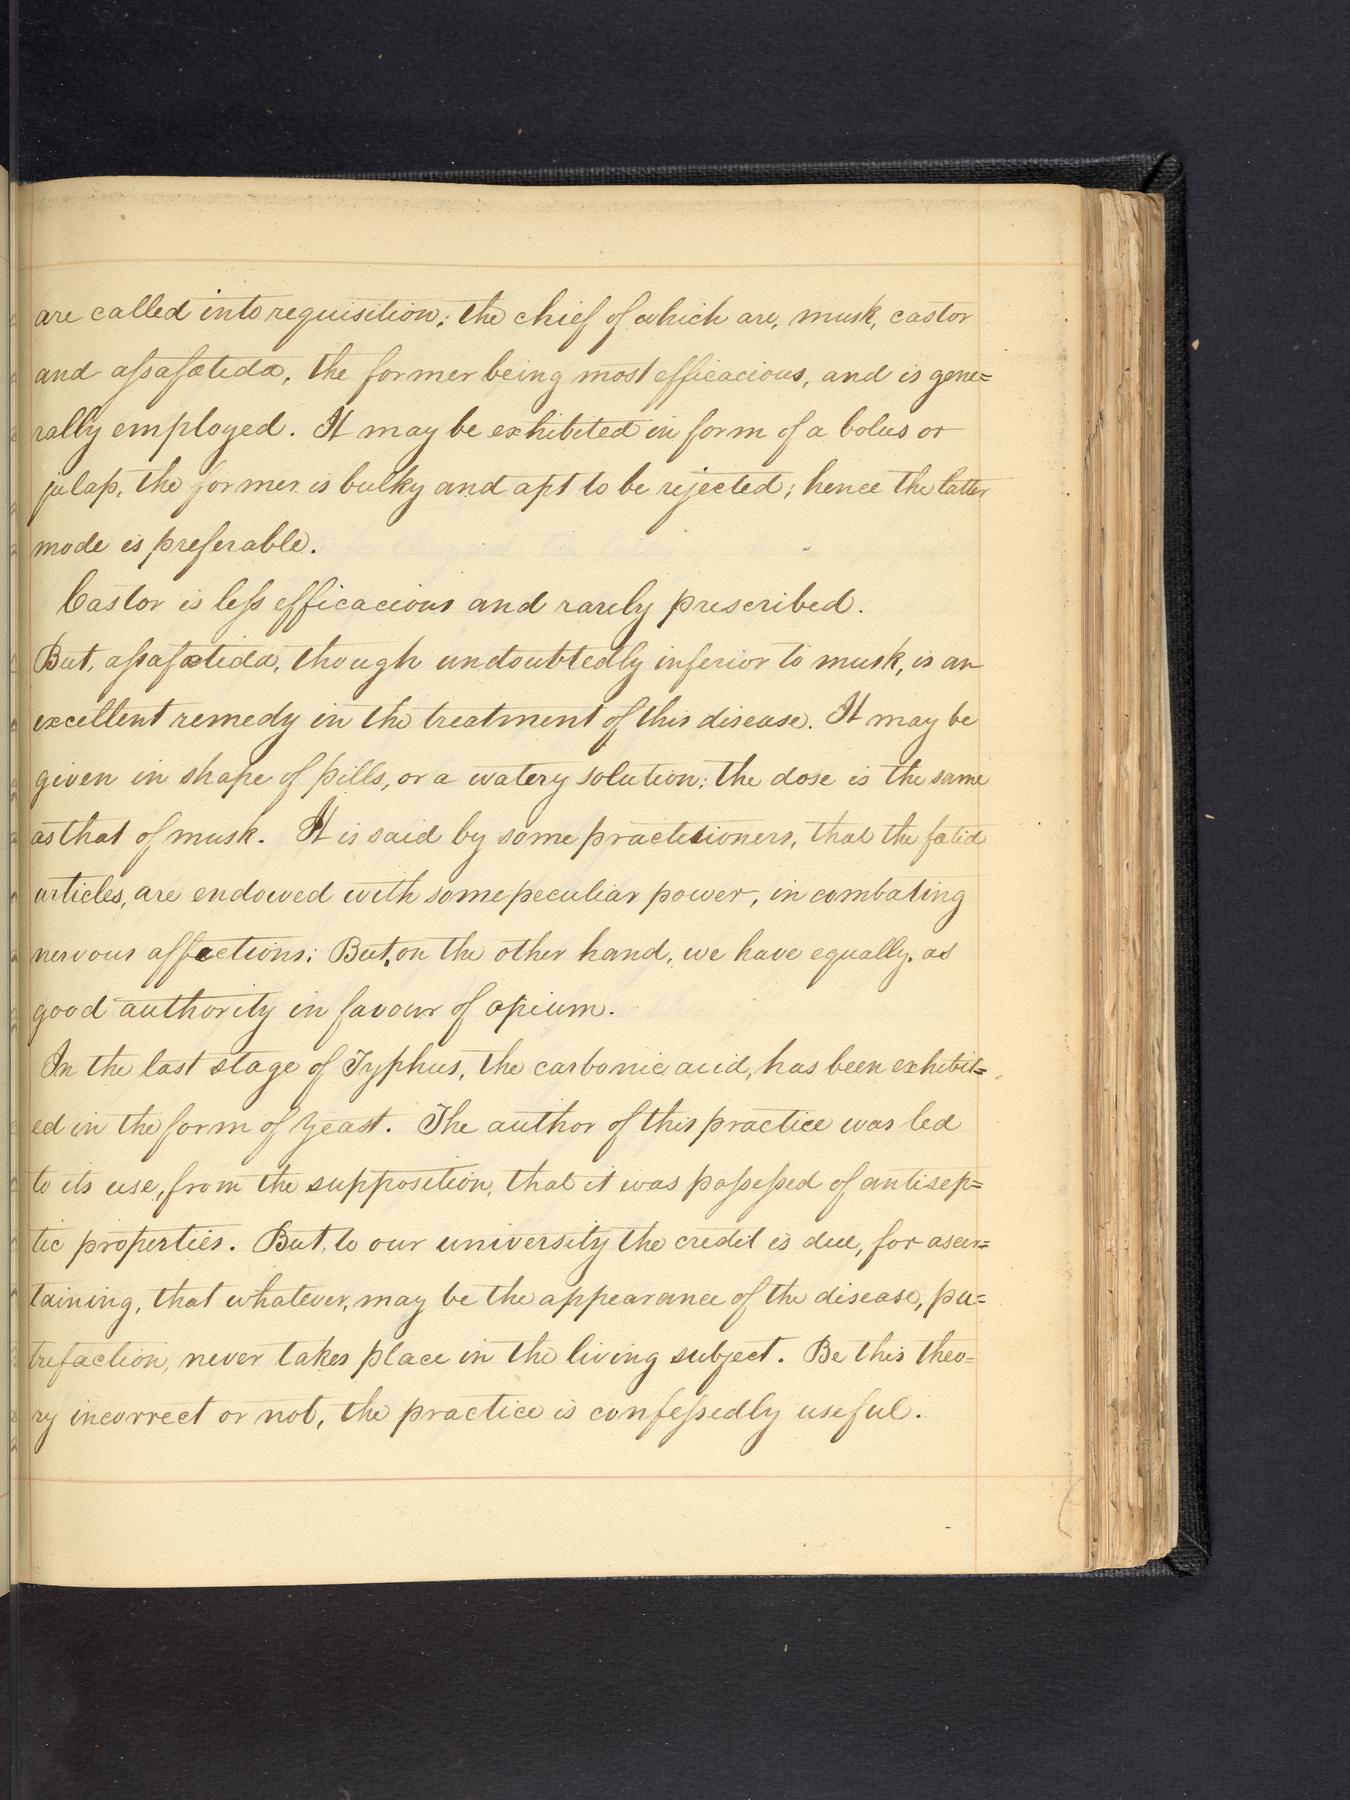 are called into requisition; the chief of which are, musk, castor
and aſsafœtida, the former being most efficacious, and is gene=
rally employed. It may be exhibited in form of a bolus or
julap, the former is bulky and apt to be rejected; hence the latter
mode is preferable.
Castor is leſs efficacious and rarely prescribed.
But, aſsafœtida, though undoubtedly inferior to musk, is an
excellent remedy in the treatment of this disease. It may be
given in shape of pills, or a watery solution; the dose is the same
as that of musk. It is said by some practitioners, that the fœtid
articles, are endowed with some peculiar power, in combating
nervous affections; But, on the other hand, we have equally, as
good authority in favour of opium.
In the last stage of Typhus, the carbonic acid, has been exhibit=
ed in the form of yeast. The author of this practice was led
to its use, from the supposition, that it was poſseſsed of antisep=
tic properties. But, to our university the credit is due, for ascer=
taining, that whatever, may be the appearance of the disease, pu=
trefaction, never takes place in the living subject. Be this theo=
ry incorrect or not, the practice is confeſsedly useful.